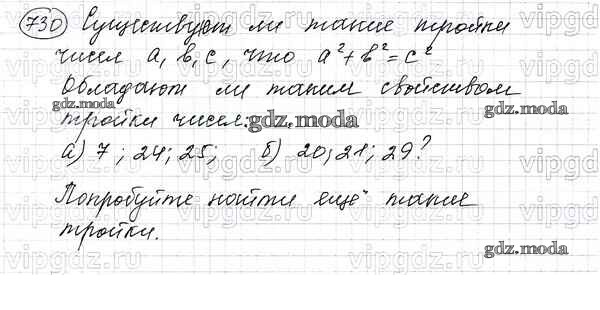 730 Существуют ли такие тройки
чисел a, b, c, что a²+b²=c²
Обладают ли таким свойством
тройки чисел:
а) 7; 24; 25; б) 20; 21; 29?
Попробуйте найти ещё такие
тройки.
gdz.moda
gdz.moda
gdz.moda
gdz.moda
vipgdz.ru